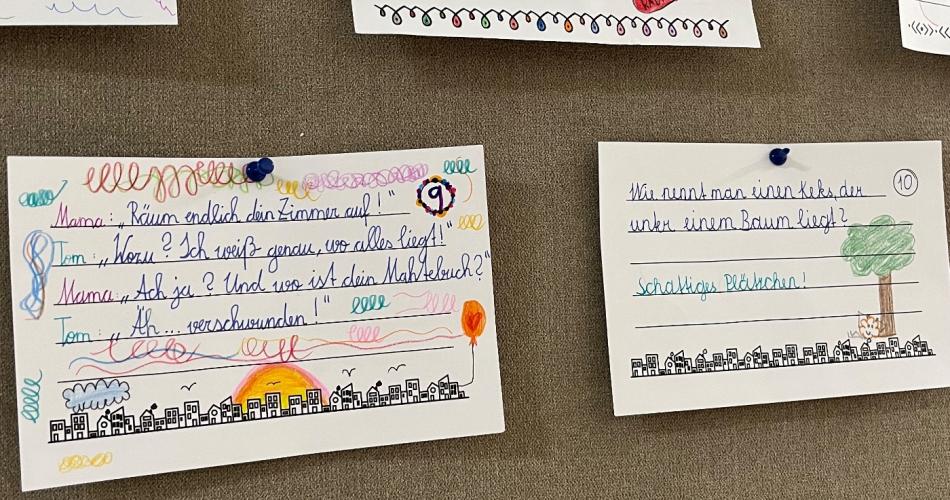 Mama: „Räum endlich dein Zimmer auf!"
9
Tom: „Wozu? Ich weiß genau, wo alles liegt!"
Mama: „Ach ja? Und wo ist dein Mathebuch?"
Tom: „Äh... verschwunden!"
Wie nennt man einen Keks, der
10
unter einem Baum liegt?
Schattiges Plätzchen!